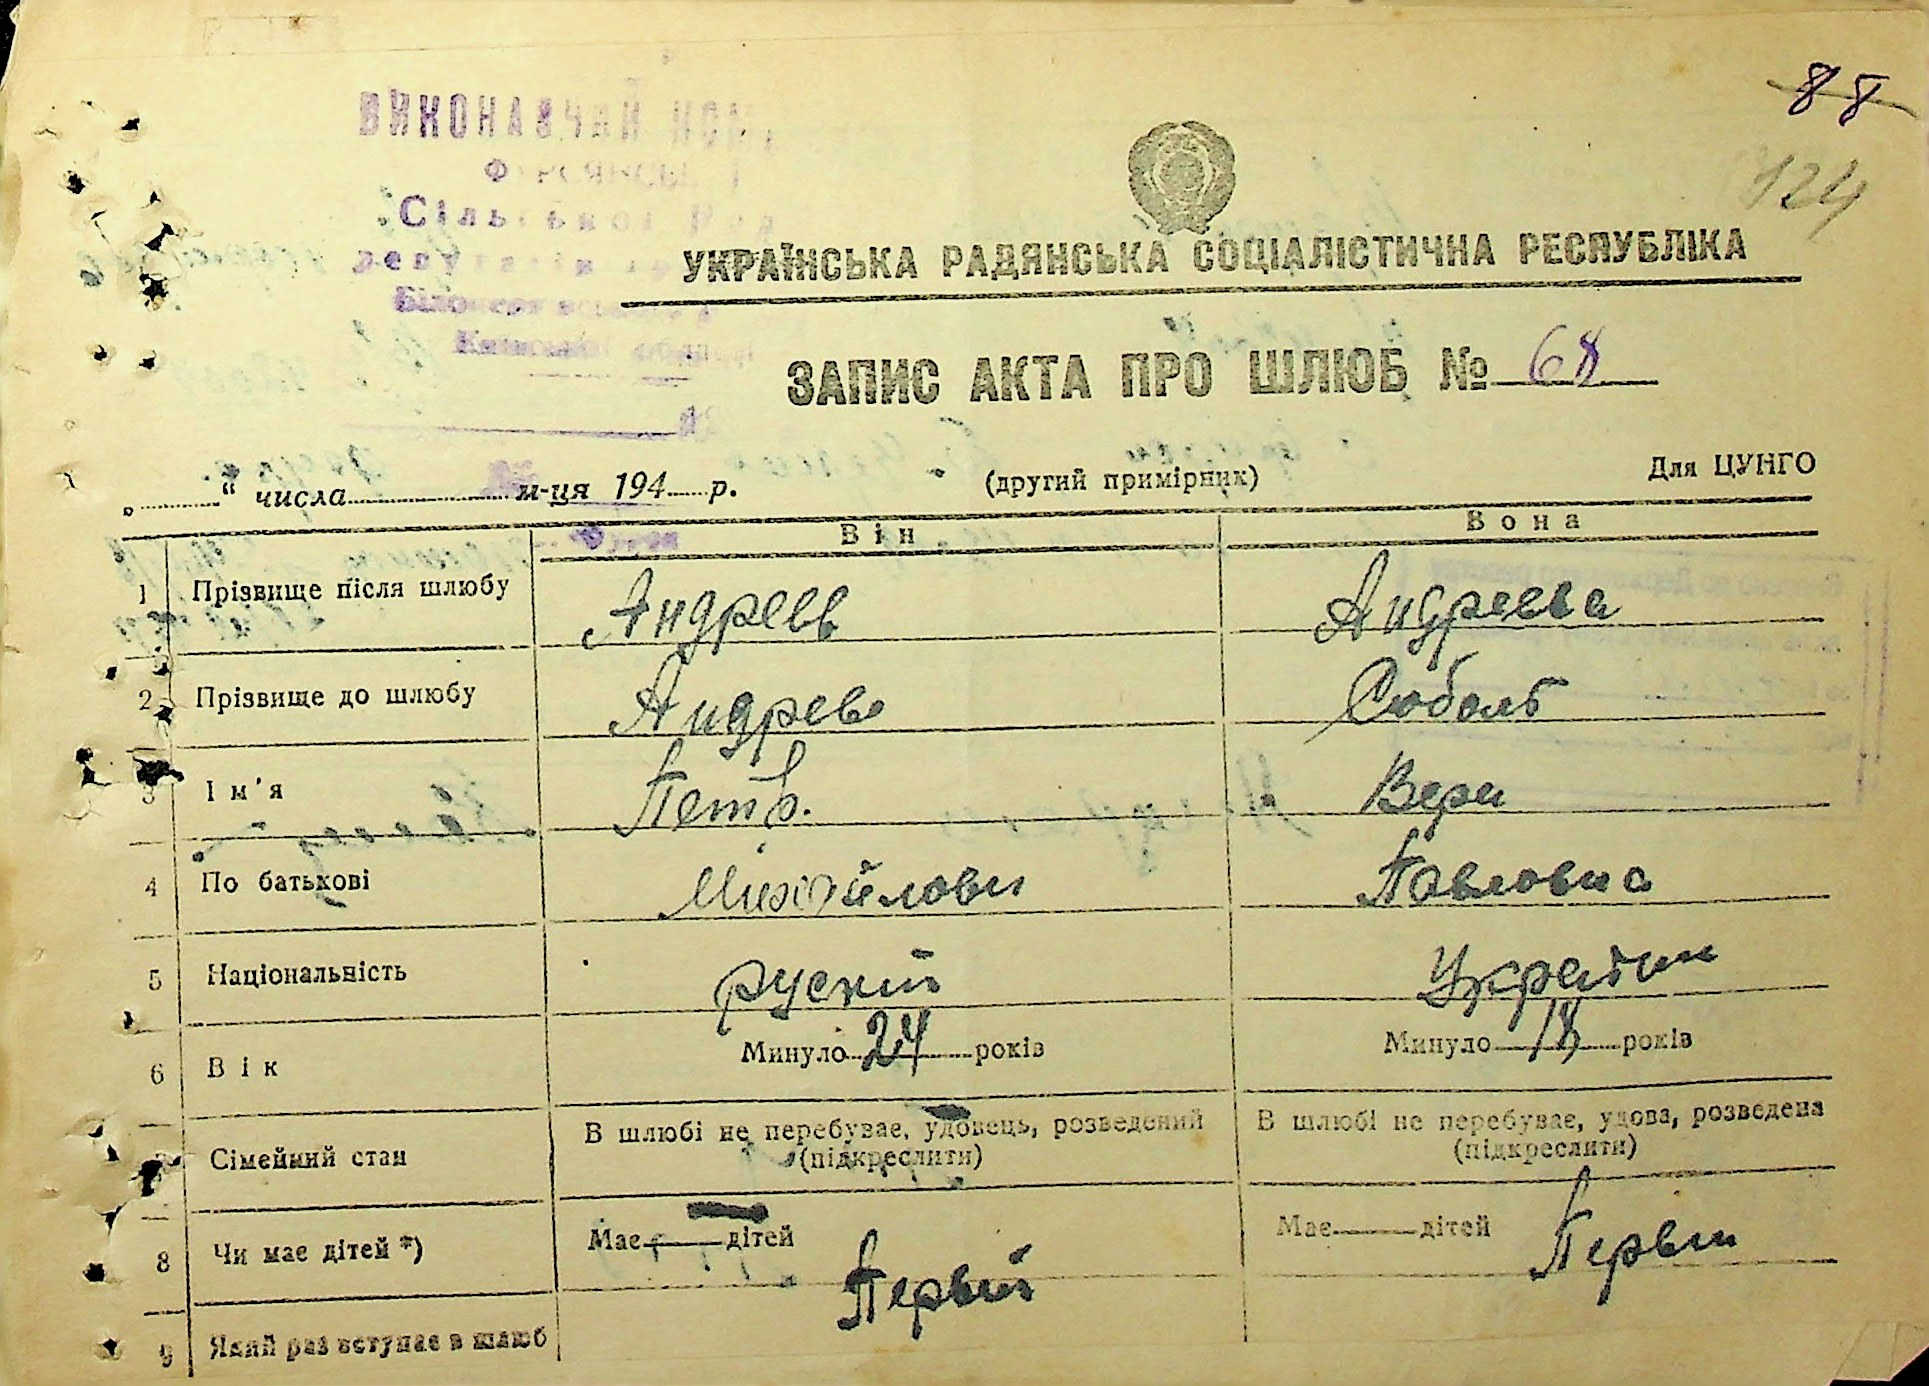 88
124
ВИКОНАВЧИЙ
Сільської
УКРАЇНСЬКА РАДЯНСЬКА СОЦІАЛІСТИЧНА РЕСПУБЛІКА
ЗАПИС АКТА ПРО ШЛЮБ № 68
„ “ числа м-ця 194 р. (другий примірник) Для ЦУНГО
Він Вона
1 Прізвище після шлюбу Андреев Андреева
2 Прізвище до шлюбу Андреев Соболь
3 Ім'я Петр. Вера
4 По батькові Міхайлови Павловна
5 Національність рускій Украін
6 Вік Минуло 24 років Минуло 18 років
7 Сімейний стан В шлюбі не перебуває, удовець, розведений (підкреслити) В шлюбі не перебуває, удова, розведена (підкреслити)
8 Чи має дітей *) Має дітей Має дітей
9 Який раз вступає в шлюб Первый Первы